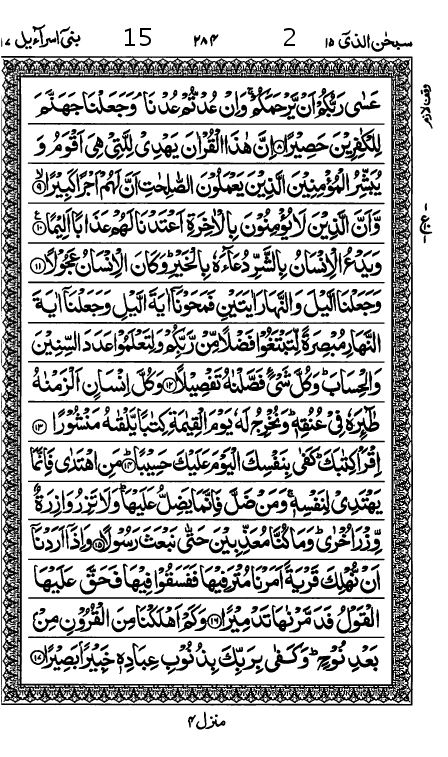 سبحٰن الذیٓ ۱۵ 2 ۲۸۴ 15 بنیٓ اسرآءیل ۱۷
عَسٰی رَبُّكُمْ اَنْ یَّرْحَمَكُمْ ۚ وَاِنْ عُدْتُّمْ عُدْنَا ۘ وَجَعَلْنَا جَهَنَّمَ
لِلْكٰفِرِیْنَ حَصِیْرًا ﴿۸﴾ اِنَّ هٰذَا الْقُرْاٰنَ یَهْدِیْ لِلَّتِیْ هِیَ اَقْوَمُ وَ
یُبَشِّرُ الْمُؤْمِنِیْنَ الَّذِیْنَ یَعْمَلُوْنَ الصّٰلِحٰتِ اَنَّ لَهُمْ اَجْرًا كَبِیْرًا ﴿۹﴾ ۙ
وَّاَنَّ الَّذِیْنَ لَا یُؤْمِنُوْنَ بِالْاٰخِرَةِ اَعْتَدْنَا لَهُمْ عَذَابًا اَلِیْمًا ﴿۱۰﴾ ع
وَیَدْعُ الْاِنْسَانُ بِالشَّرِّ دُعَآءَهٗ بِالْخَیْرِ ؕ وَكَانَ الْاِنْسَانُ عَجُوْلًا ﴿۱۱﴾
وَجَعَلْنَا الَّیْلَ وَالنَّهَارَ اٰیَتَیْنِ فَمَحَوْنَاۤ اٰیَةَ الَّیْلِ وَجَعَلْنَاۤ اٰیَةَ
النَّهَارِ مُبْصِرَةً لِّتَبْتَغُوْا فَضْلًا مِّنْ رَّبِّكُمْ وَلِتَعْلَمُوْا عَدَدَ السِّنِیْنَ
وَالْحِسَابَ ؕ وَكُلَّ شَیْءٍ فَصَّلْنٰهُ تَفْصِیْلًا ﴿۱۲﴾ وَكُلَّ اِنْسَانٍ اَلْزَمْنٰهُ
طٰٓئِرَهٗ فِیْ عُنُقِهٖ ؕ وَنُخْرِجُ لَهٗ یَوْمَ الْقِیٰمَةِ كِتٰبًا یَّلْقٰىهُ مَنْشُوْرًا ﴿۱۳﴾
اِقْرَاْ كِتٰبَكَ ؕ كَفٰی بِنَفْسِكَ الْیَوْمَ عَلَیْكَ حَسِیْبًا ﴿۱۴﴾ ؕ مَنِ اهْتَدٰی فَاِنَّمَا
یَهْتَدِیْ لِنَفْسِهٖ ۚ وَمَنْ ضَلَّ فَاِنَّمَا یَضِلُّ عَلَیْهَا ؕ وَلَا تَزِرُ وَازِرَةٌ
وِّزْرَ اُخْرٰی ؕ وَمَا كُنَّا مُعَذِّبِیْنَ حَتّٰی نَبْعَثَ رَسُوْلًا ﴿۱۵﴾ وَاِذَاۤ اَرَدْنَاۤ
اَنْ نُّهْلِكَ قَرْیَةً اَمَرْنَا مُتْرَفِیْهَا فَفَسَقُوْا فِیْهَا فَحَقَّ عَلَیْهَا
الْقَوْلُ فَدَمَّرْنٰهَا تَدْمِیْرًا ﴿۱۶﴾ وَكَمْ اَهْلَكْنَا مِنَ الْقُرُوْنِ مِنْۢ
بَعْدِ نُوْحٍ ؕ وَكَفٰی بِرَبِّكَ بِذُنُوْبِ عِبَادِهٖ خَبِیْرًۢا بَصِیْرًا ﴿۱۷﴾
منزل ۴